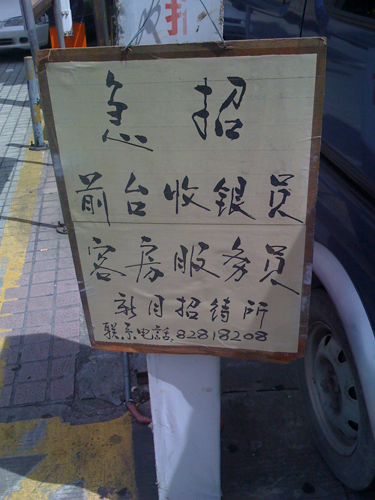 招
急 招
前台收银员
客房服务员
新月招待所
联系电话:82818208